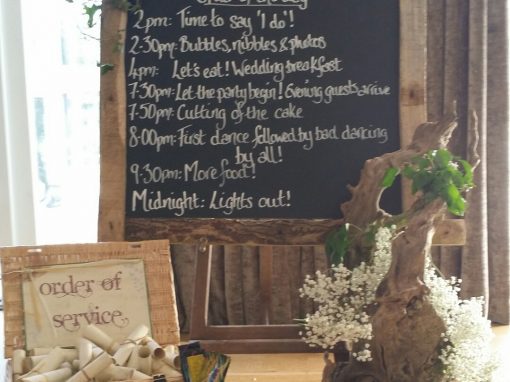 2pm: Time to say 'I do'!
2-30pm: Bubbles, nibbles & photos
4pm: Let's eat! Wedding breakfast
7-30pm: Let the party begin! Evening guests arrive
7-50pm: Cutting of the cake
8-00pm: First dance followed by bad dancing
by all!
9-30pm: More food!
Midnight: Lights out!
order of
service